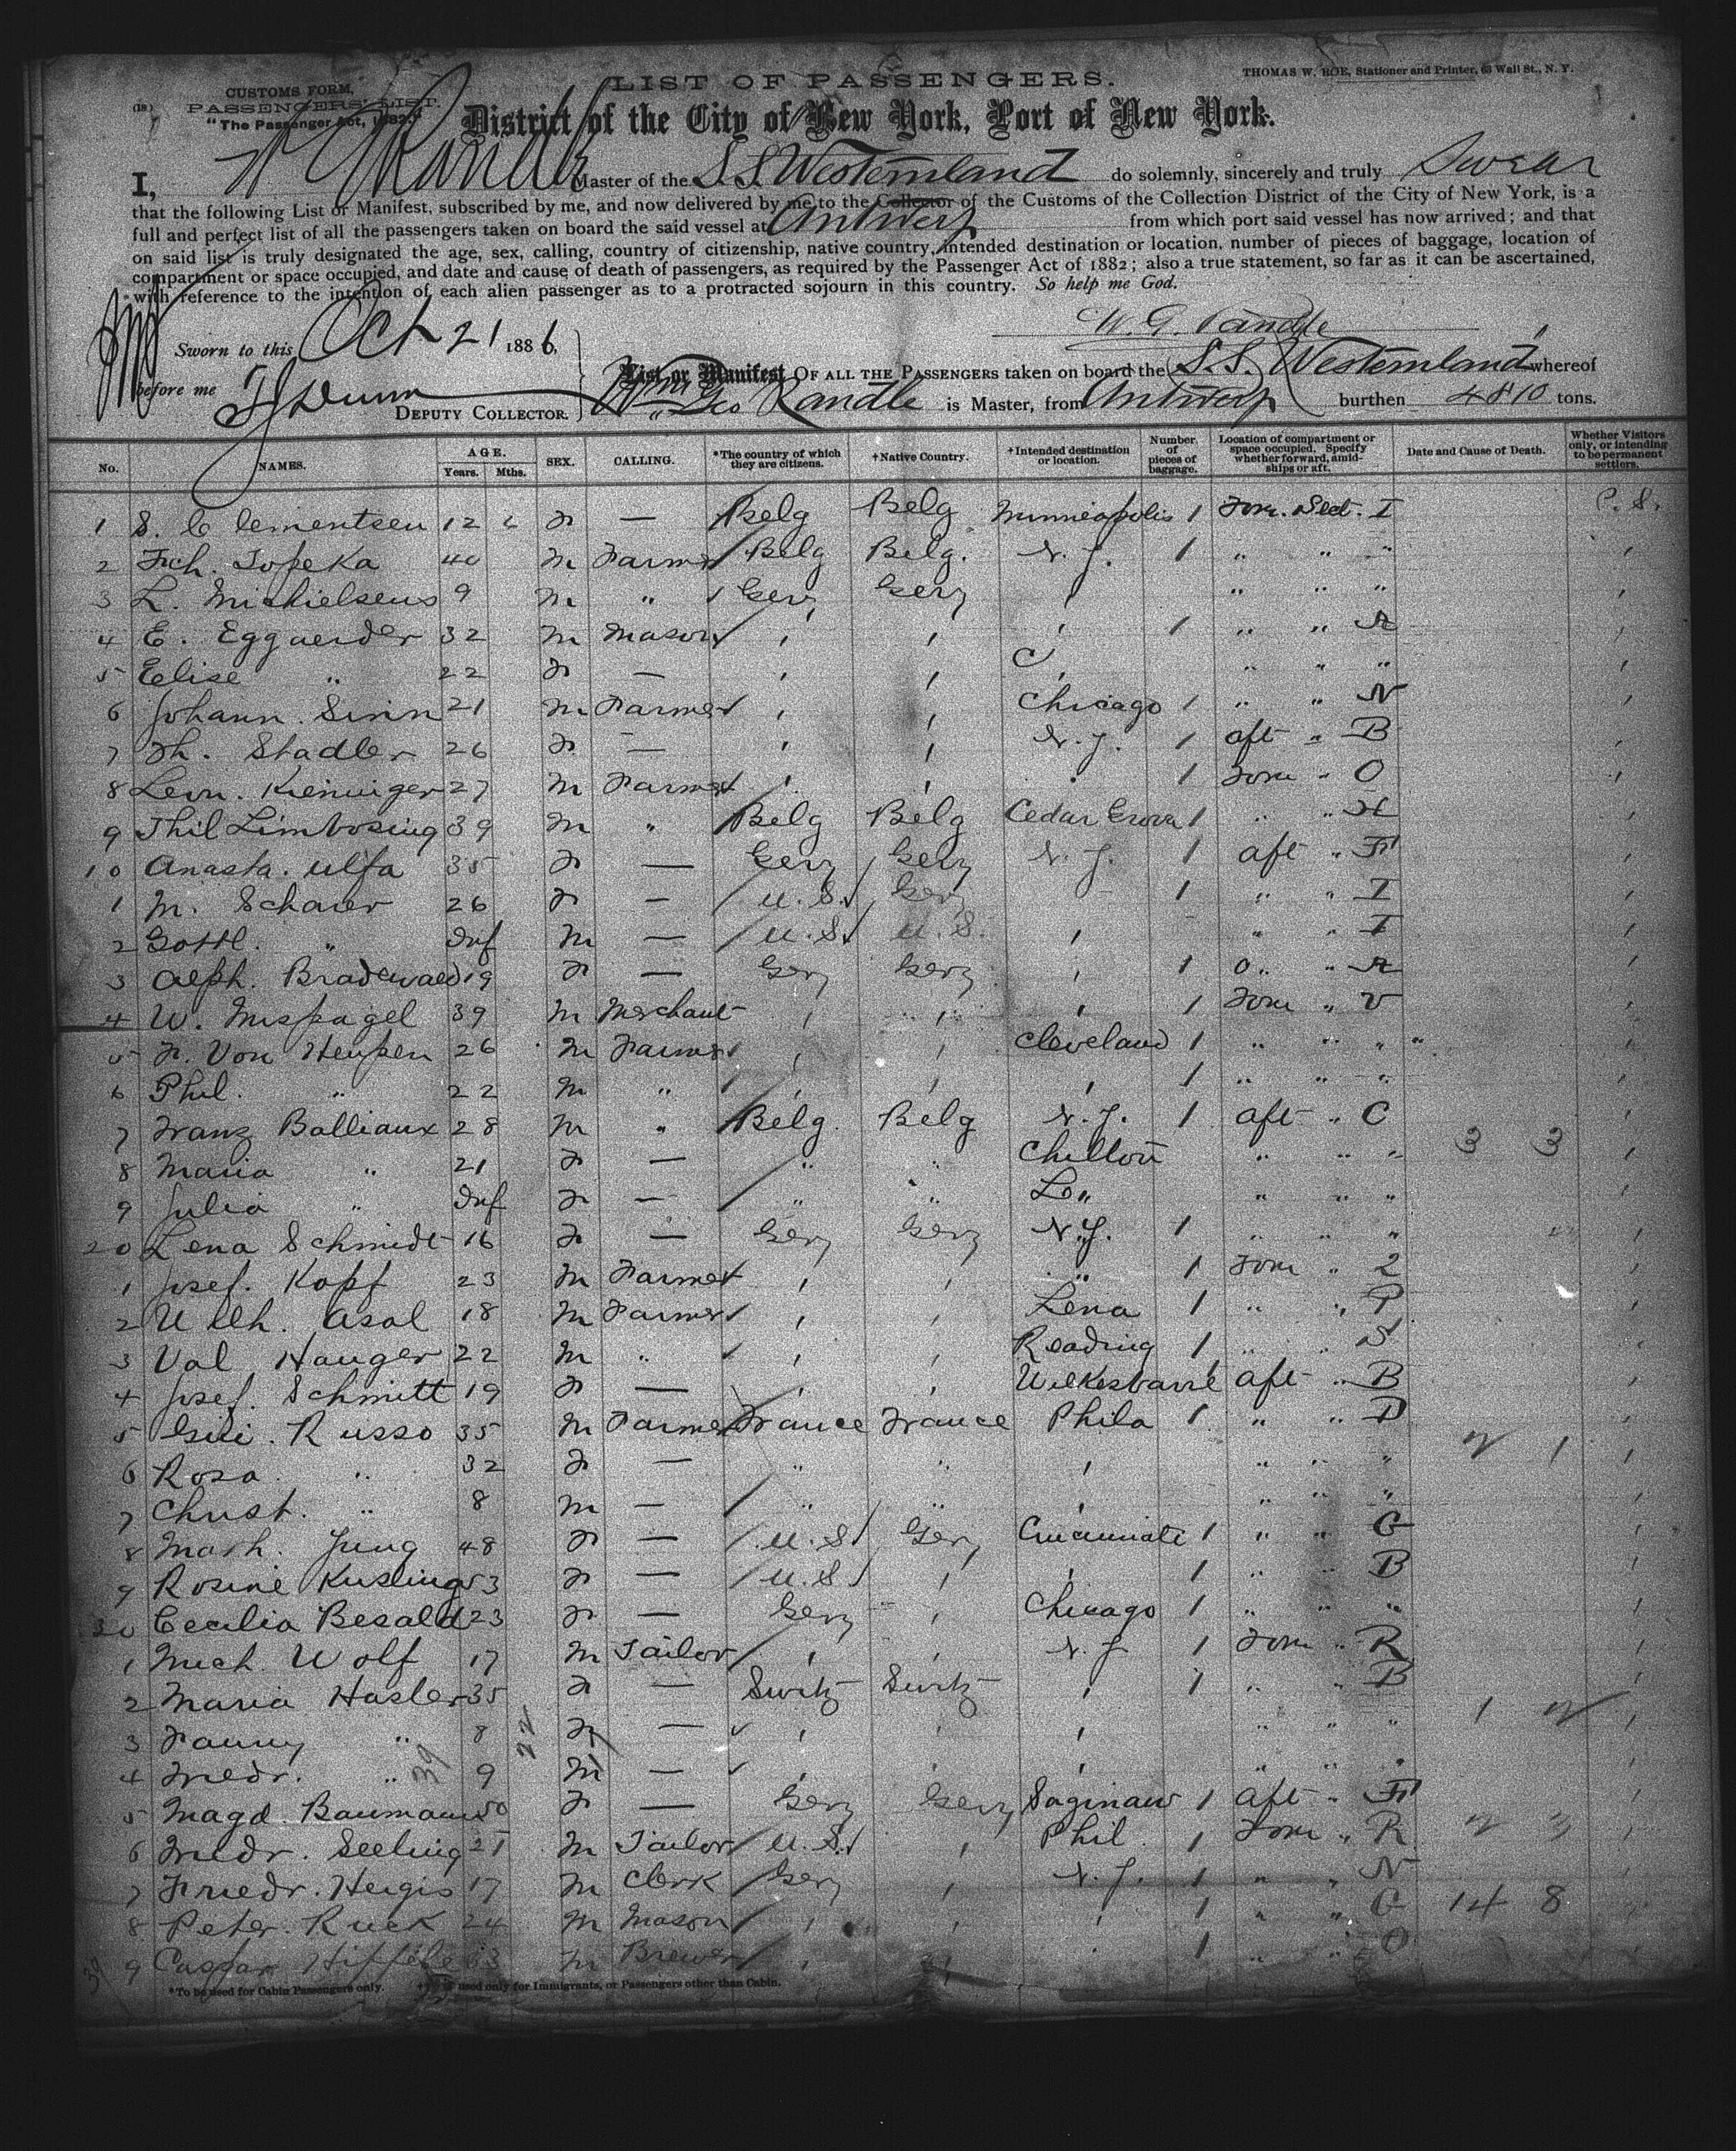 CUSTOMS FORM,
PASSENGERS' LIST.
"The Passenger Act, 1882."
LIST OF PASSENGERS.
THOMAS W. ROE, Stationer and Printer, 63 Wall St., N. Y.
District of the City of New York, Port of New York.
I, W G Randle Master of the S.S. Westernland do solemnly, sincerely and truly Swear
that the following List or Manifest, subscribed by me, and now delivered by me to the Collector of the Customs of the Collection District of the City of New York, is a
full and perfect list of all the passengers taken on board the said vessel at Antwerp from which port said vessel has now arrived; and that
on said list is truly designated the age, sex, calling, country of citizenship, native country, intended destination or location, number of pieces of baggage, location of
compartment or space occupied, and date and cause of death of passengers, as required by the Passenger Act of 1882; also a true statement, so far as it can be ascertained,
with reference to the intention of each alien passenger as to a protracted sojourn in this country. So help me God.
W. G. Randle
Sworn to this Oct 21 1886,
before me
DEPUTY COLLECTOR.
List or Manifest OF ALL THE PASSENGERS taken on board the S.S. Westernland whereof
Wm Geo Randle is Master, from Antwerp burthen 4810 tons.
No. NAMES. AGE. Years. Mths. SEX. CALLING. *The country of which they are citizens. †Native Country. †Intended destination or location. Number of pieces of baggage. Location of compartment or space occupied. Specify whether forward, amidships or aft. Date and Cause of Death. Whether Visitors only, or intending to be permanent settlers.
1 S. Clementsen 12 6 F — Belg Belg Minneapolis 1 Forw. Sect. I P. S.
2 Fch. Topeka 40 M Farmer Belg Belg. N. Y. 1 " " "
3 L. Michielsens 9 M " Gery Gery " " "
4 E. Eggaerder 32 M Mason 1 " " A
5 Elise " 22 F — " " "
6 Johann. Sinn 21 M Farmer Chicago 1 " " N
7 Th. Stadler 26 F — N. Y. 1 aft " B
8 Leon. Kieninger 27 M Farmer 1 Forw " O
9 Thil Limbosing 39 M " Belg Belg Cedar Grove 1 " " H
10 Anasta. Ulfa 35 F — Gery Gery N. Y. 1 aft " F
1 M. Scharer 26 F — U. S. Gery 1 " " I
2 Gottl. " Inf M — U. S. U. S. " " I
3 Alph. Bradewaed 19 F — Gery Gery 1 " " A
4 W. Mispagel 39 M Merchant 1 Forw " V
5 F. Von Heupen 26 M Farmer Cleveland 1 " " "
6 Phil. " 22 M " 1 " " "
7 Franz Balliaux 28 M " Belg. Belg N. Y. 1 aft " C
8 Maria " 21 F — " " Chilton " " " 3 3
9 Julia " Inf F — " " " " "
20 Lena Schmidt 16 F — Gery Gery N. Y. 1 " " "
1 Josef. Kopf 23 M Farmer " 1 Forw " 2
2 Wilh. Asal 18 M Farmer Lena 1 " " P
3 Val Hauger 22 M " Reading 1 " " S
4 Josef. Schmitt 19 F — Wilkesbarre aft " B
5 Gui. Russo 35 M Farmer France France Phila 1 " " D
6 Rosa " 32 F — " " " " "
7 Christ. " 8 M — " " " " "
8 Marh. Jung 48 F — U. S. Gery Cincinnati 1 " " G
9 Rosine Kisling 53 F — U. S. 1 " " B
30 Cecilia Besald 23 F — Gery Chicago 1 " " "
1 Mich. Wolf 17 M Tailor N. Y 1 Forw " R
2 Maria Hasler 35 F — Switz Switz 1 " " B
3 Fanny " 8 F — " " "
4 Friedr. " 9 M — " " "
5 Magd. Baumann 50 F — Gery Gery Saginaw 1 aft " F
6 Friedr. Seeling 21 M Tailor U. S. Phil. 1 Forw " R
7 Friedr. Heigis 17 M Clerk Gery N. Y. 1 " " N
8 Peter. Ruck 24 M Mason 1 " " G 14 8
9 Caspar M Brewer 1 " " O
*To be used for Cabin Passengers only. used only for Immigrants, or Passengers other than Cabin.